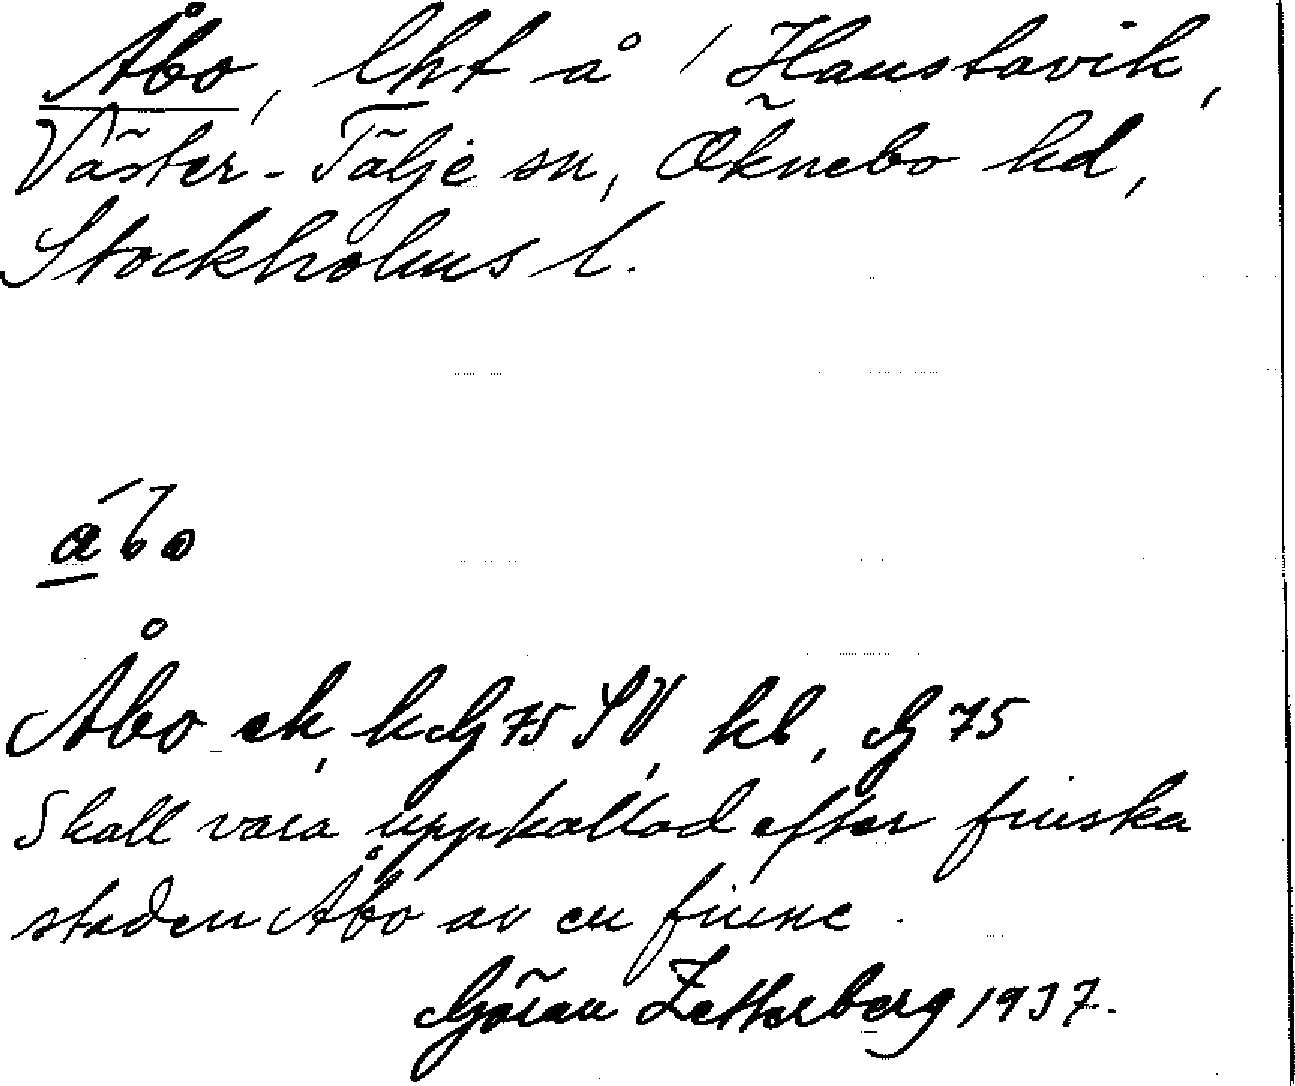 Åbo, lht å Hanstavik,
Väster-Tälje sn, Öknebo hd,
Stockholms l.
åbo
Åbo ek, kG75 SV, kb, G75
Skall vara uppkallad efter finska
staden Åbo av en finne.
Göran Zetterberg 1937.